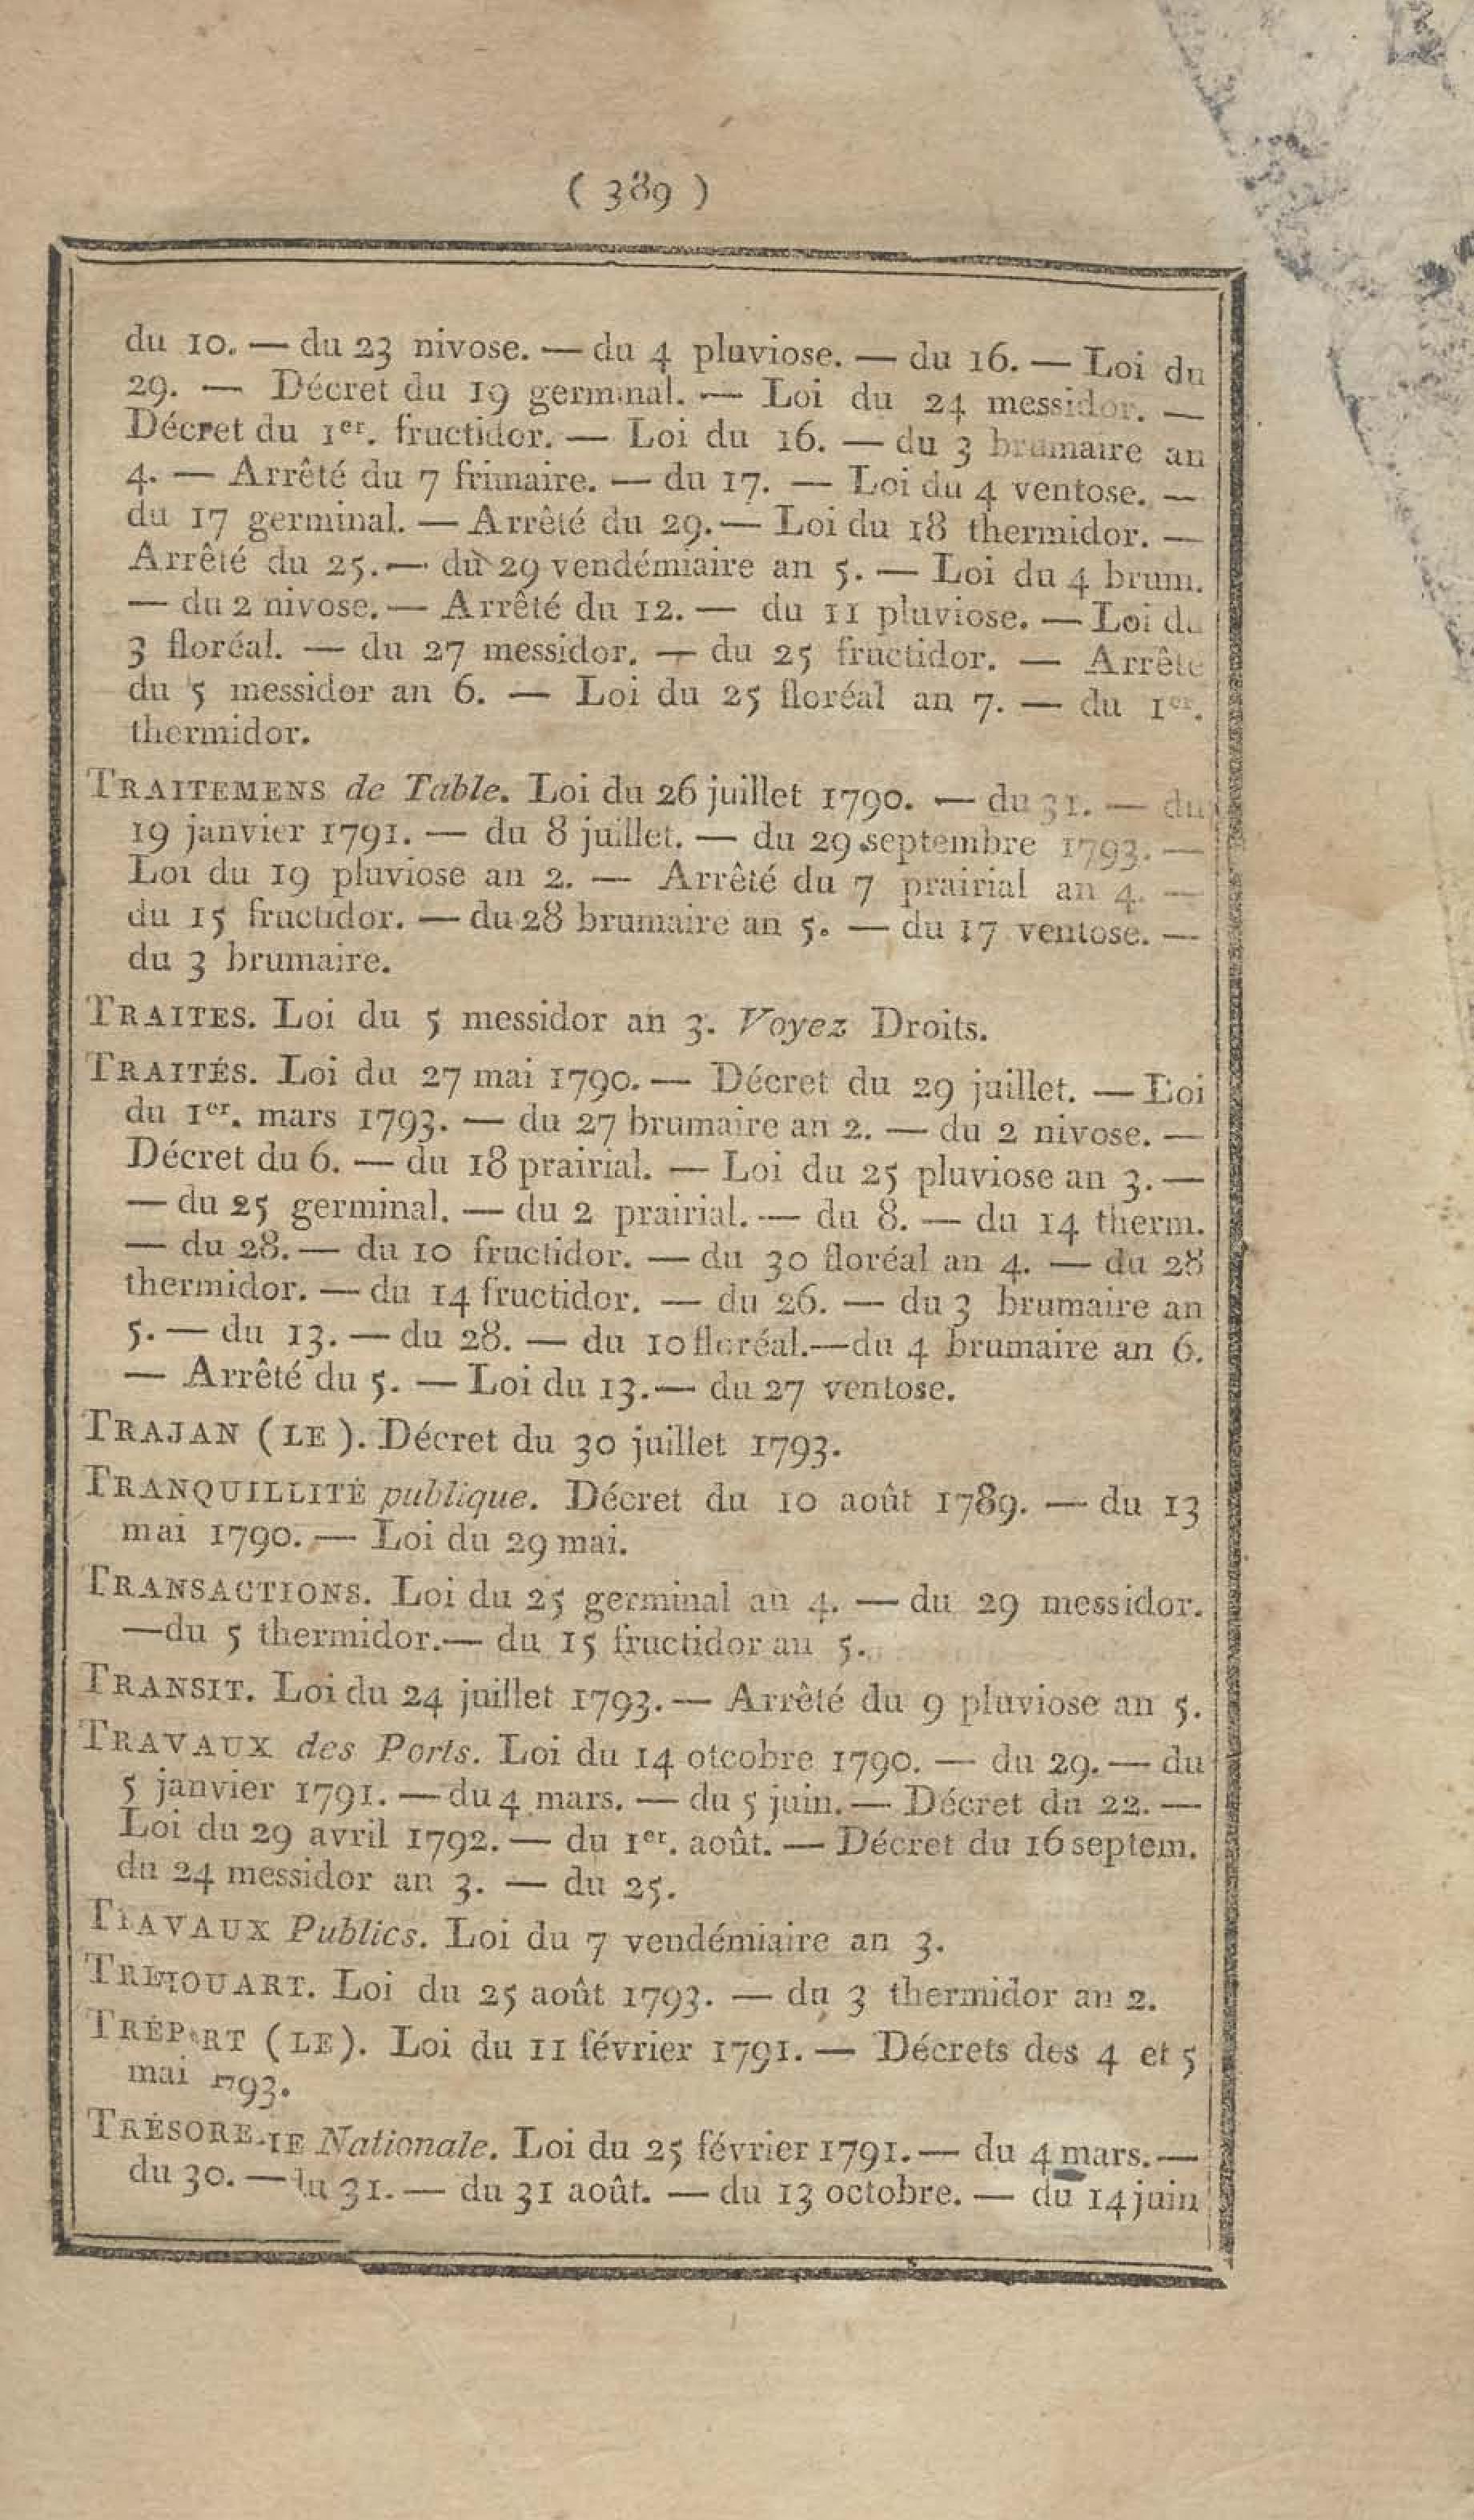 ( 389 )
du 10. — du 23 nivose. — du 4 pluviose. — du 16. — Loi du
29. — Décret du 19 germinal. — Loi du 24 messidor. —
Décret du 1er. fructidor. — Loi du 16. — du 3 brumaire an
4. — Arrêté du 7 frimaire. — du 17. — Loi du 4 ventose. —
du 17 germinal. — Arrêté du 29. — Loi du 18 thermidor. —
Arrêté du 25. — du 29 vendémiaire an 5. — Loi du 4 brum.
— du 2 nivose. — Arrêté du 12. — du 11 pluviose. — Loi du
3 floréal. — du 27 messidor. — du 25 fructidor. — Arrêté
du 5 messidor an 6. — Loi du 25 floréal an 7. — du 1er.
thermidor.
TRAITEMENS de Table. Loi du 26 juillet 1790. — du 31. — du
19 janvier 1791. — du 8 juillet. — du 29 septembre 1793. —
Loi du 19 pluviose an 2. — Arrêté du 7 prairial an 4. —
du 15 fructidor. — du 28 brumaire an 5. — du 17 ventose. —
du 3 brumaire.
TRAITES. Loi du 5 messidor an 3. Voyez Droits.
TRAITÉS. Loi du 27 mai 1790. — Décret du 29 juillet. — Loi
du 1er. mars 1793. — du 27 brumaire an 2. — du 2 nivose. —
Décret du 6. — du 18 prairial. — Loi du 25 pluviose an 3. —
— du 25 germinal. — du 2 prairial. — du 8. — du 14 therm.
— du 28. — du 10 fructidor. — du 30 floréal an 4. — du 28
thermidor. — du 14 fructidor. — du 26. — du 3 brumaire an
5. — du 13. — du 28. — du 10 floréal. — du 4 brumaire an 6.
— Arrêté du 5. — Loi du 13. — du 27 ventose.
TRAJAN (LE). Décret du 30 juillet 1793.
TRANQUILLITÉ publique. Décret du 10 août 1789. — du 13
mai 1790. — Loi du 29 mai.
TRANSACTIONS. Loi du 25 germinal an 4. — du 29 messidor.
— du 5 thermidor. — du 15 fructidor an 5.
TRANSIT. Loi du 24 juillet 1793. — Arrêté du 9 pluviose an 5.
TRAVAUX des Ports. Loi du 14 otcobre 1790. — du 29. — du
5 janvier 1791. — du 4 mars. — du 5 juin. — Décret du 22. —
Loi du 29 avril 1792. — du 1er. août. — Décret du 16 septem.
du 24 messidor an 3. — du 25.
TRAVAUX Publics. Loi du 7 vendémiaire an 3.
TREHOUART. Loi du 25 août 1793. — du 3 thermidor an 2.
TRÉPORT (LE). Loi du 11 février 1791. — Décrets des 4 et 5
mai 1793.
TRÉSORERIE Nationale. Loi du 25 février 1791. — du 4 mars. —
du 30. — du 31. — du 31 août. — du 13 octobre. — du 14 juin